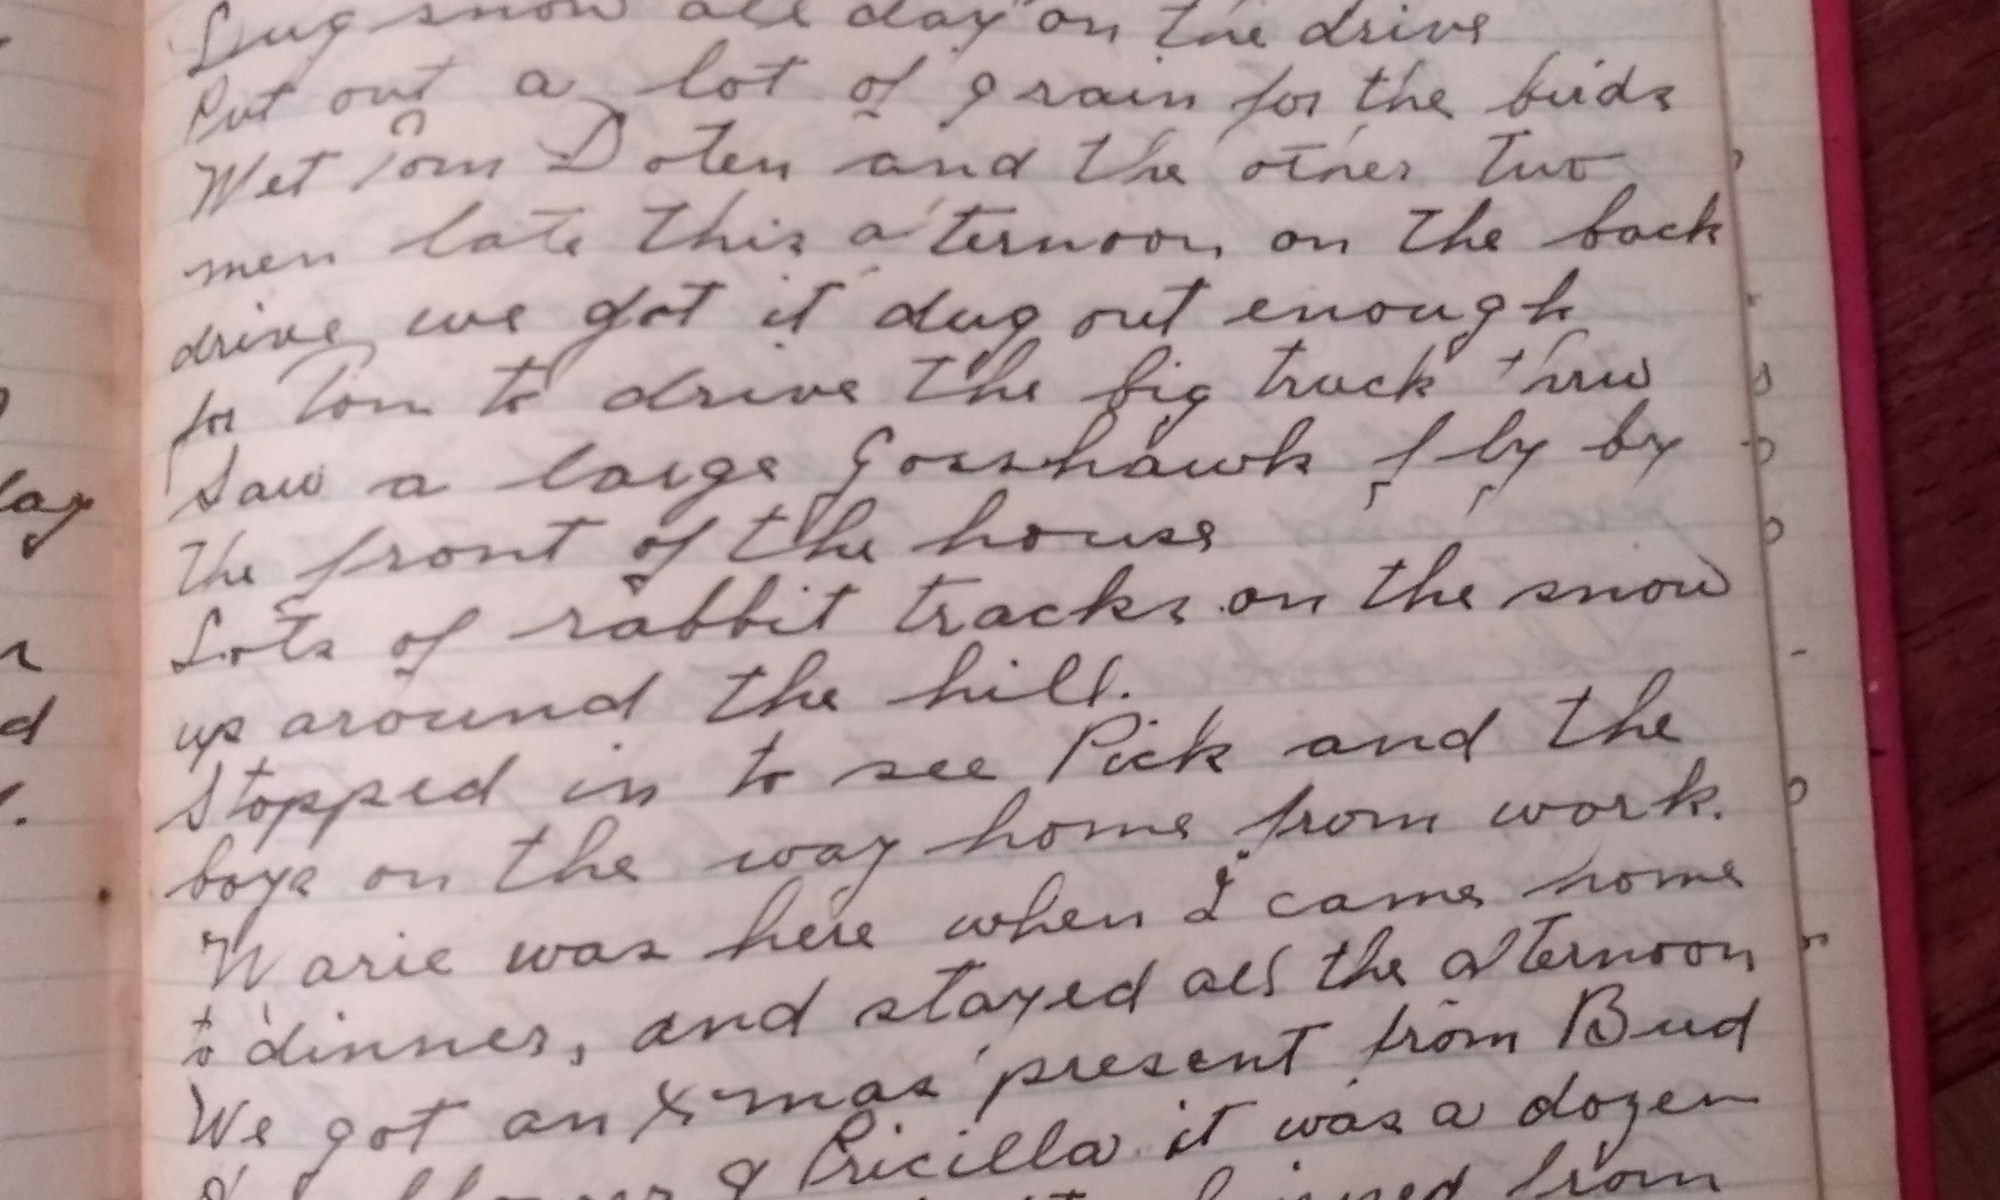 Dug snow all day on the drive
Put out a lot of grain for the birds
Wet Tom Doten and the other two
men late this afternoon on the back
drive we got it dug out enough
for Tom to drive the big truck thru
Saw a large Gosshawk fly by
the front of the house
Lots of rabbit tracks on the snow
up around the hill.
Stopped in to see Pick and the
boys on the way home from work.
Marie was here when I came home
to dinner, and stayed all the afternoon
We got an X-mas present from Bud
& Pricilla it was a dozen
from
lay
d